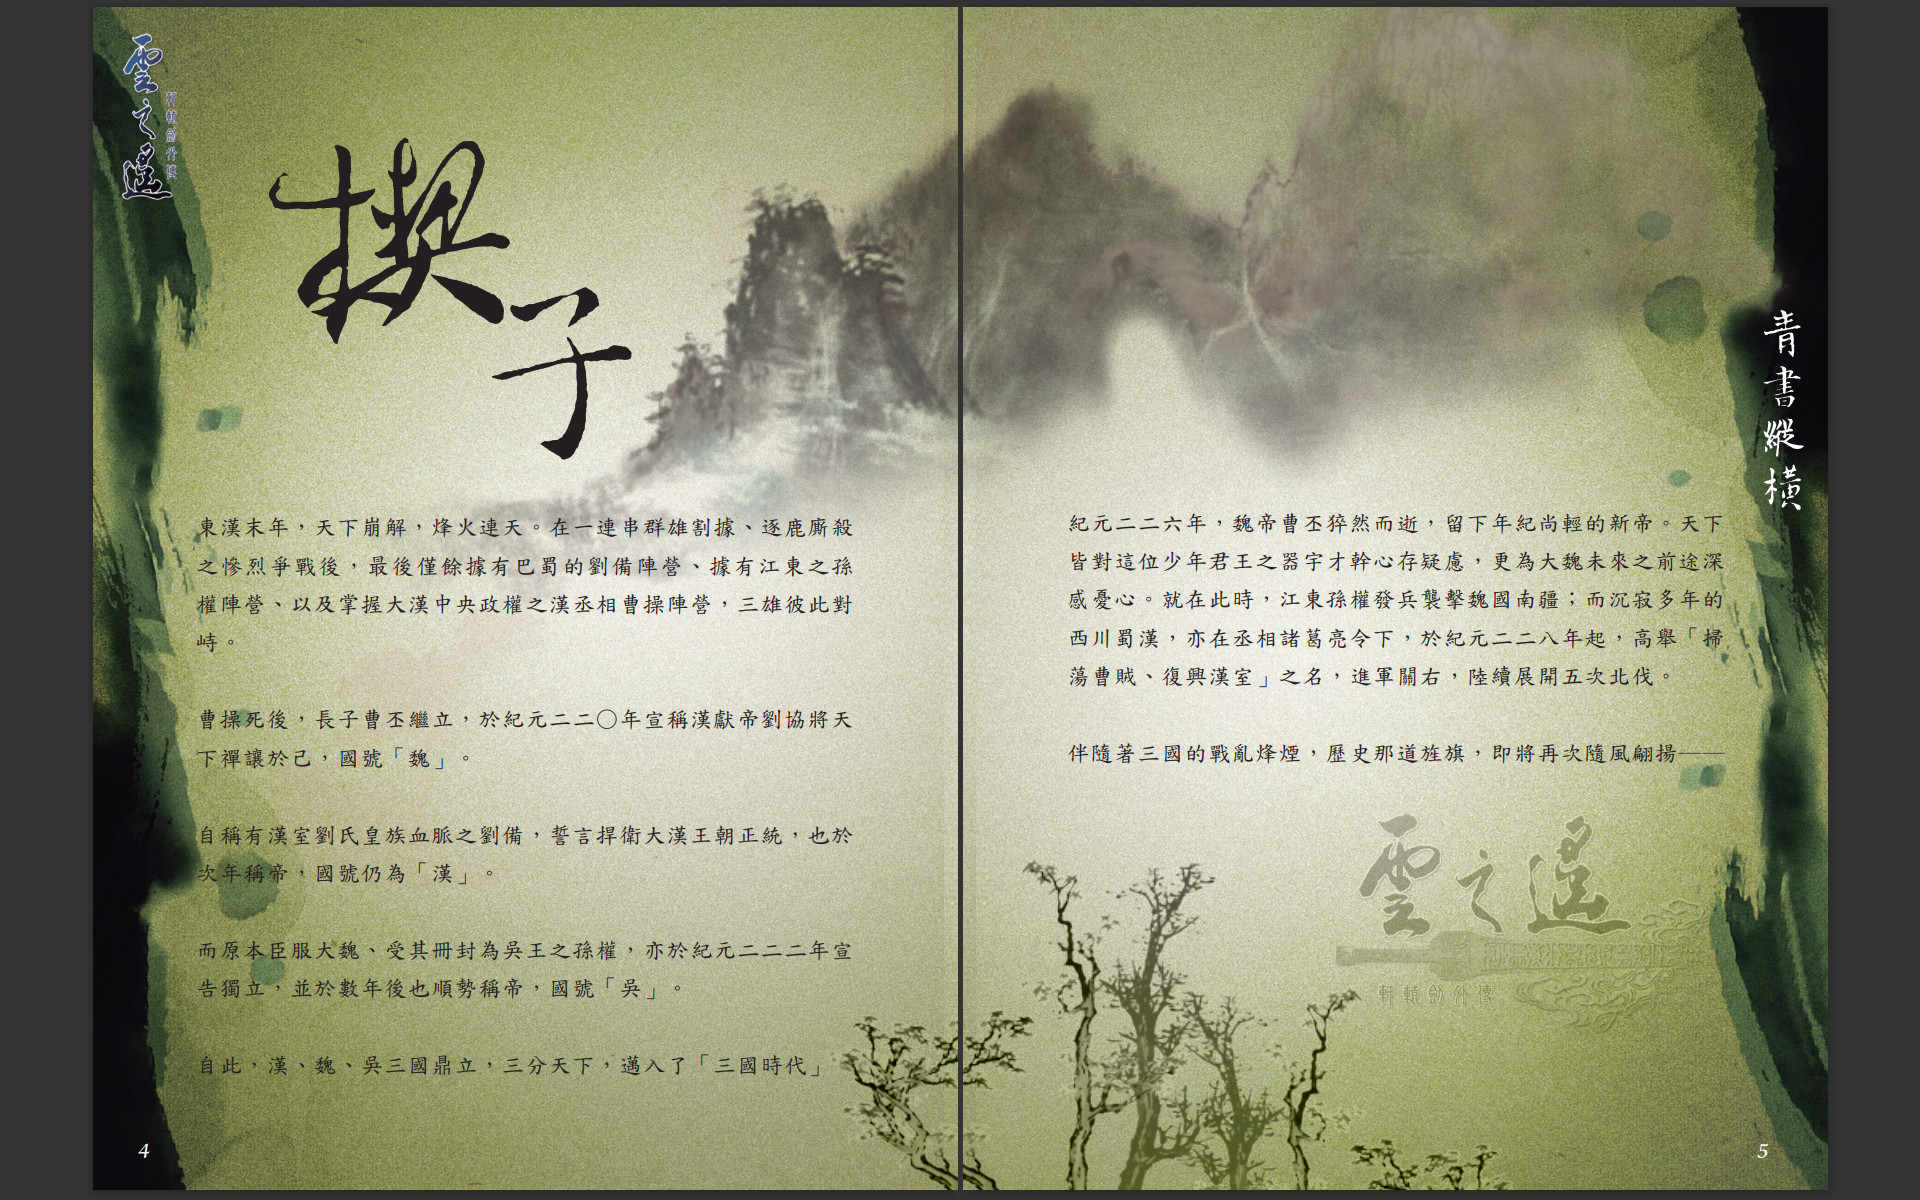 雲之遙
軒轅劍外傳
楔子
東漢末年，天下崩解，烽火連天。在一連串群雄割據、逐鹿廝殺
之慘烈爭戰後，最後僅餘據有巴蜀的劉備陣營、據有江東之孫
權陣營、以及掌握大漢中央政權之漢丞相曹操陣營，三雄彼此對
峙。
曹操死後，長子曹丕繼立，於紀元二二〇年宣稱漢獻帝劉協將天
下禪讓於己，國號「魏」。
自稱有漢室劉氏皇族血脈之劉備，誓言捍衛大漢王朝正統，也於
次年稱帝，國號仍為「漢」。
而原本臣服大魏、受其冊封為吳王之孫權，亦於紀元二二二年宣
告獨立，並於數年後也順勢稱帝，國號「吳」。
自此，漢、魏、吳三國鼎立，三分天下，邁入了「三國時代」
4
青書縱橫
紀元二二六年，魏帝曹丕猝然而逝，留下年紀尚輕的新帝。天下
皆對這位少年君王之器宇才幹心存疑慮，更為大魏未來之前途深
感憂心。就在此時，江東孫權發兵襲擊魏國南疆；而沉寂多年的
西川蜀漢，亦在丞相諸葛亮令下，於紀元二二八年起，高舉「掃
蕩曹賊、復興漢室」之名，進軍關右，陸續展開五次北伐。
伴隨著三國的戰亂烽煙，歷史那道旌旗，即將再次隨風翩揚——
雲之遙
軒轅劍外傳
5